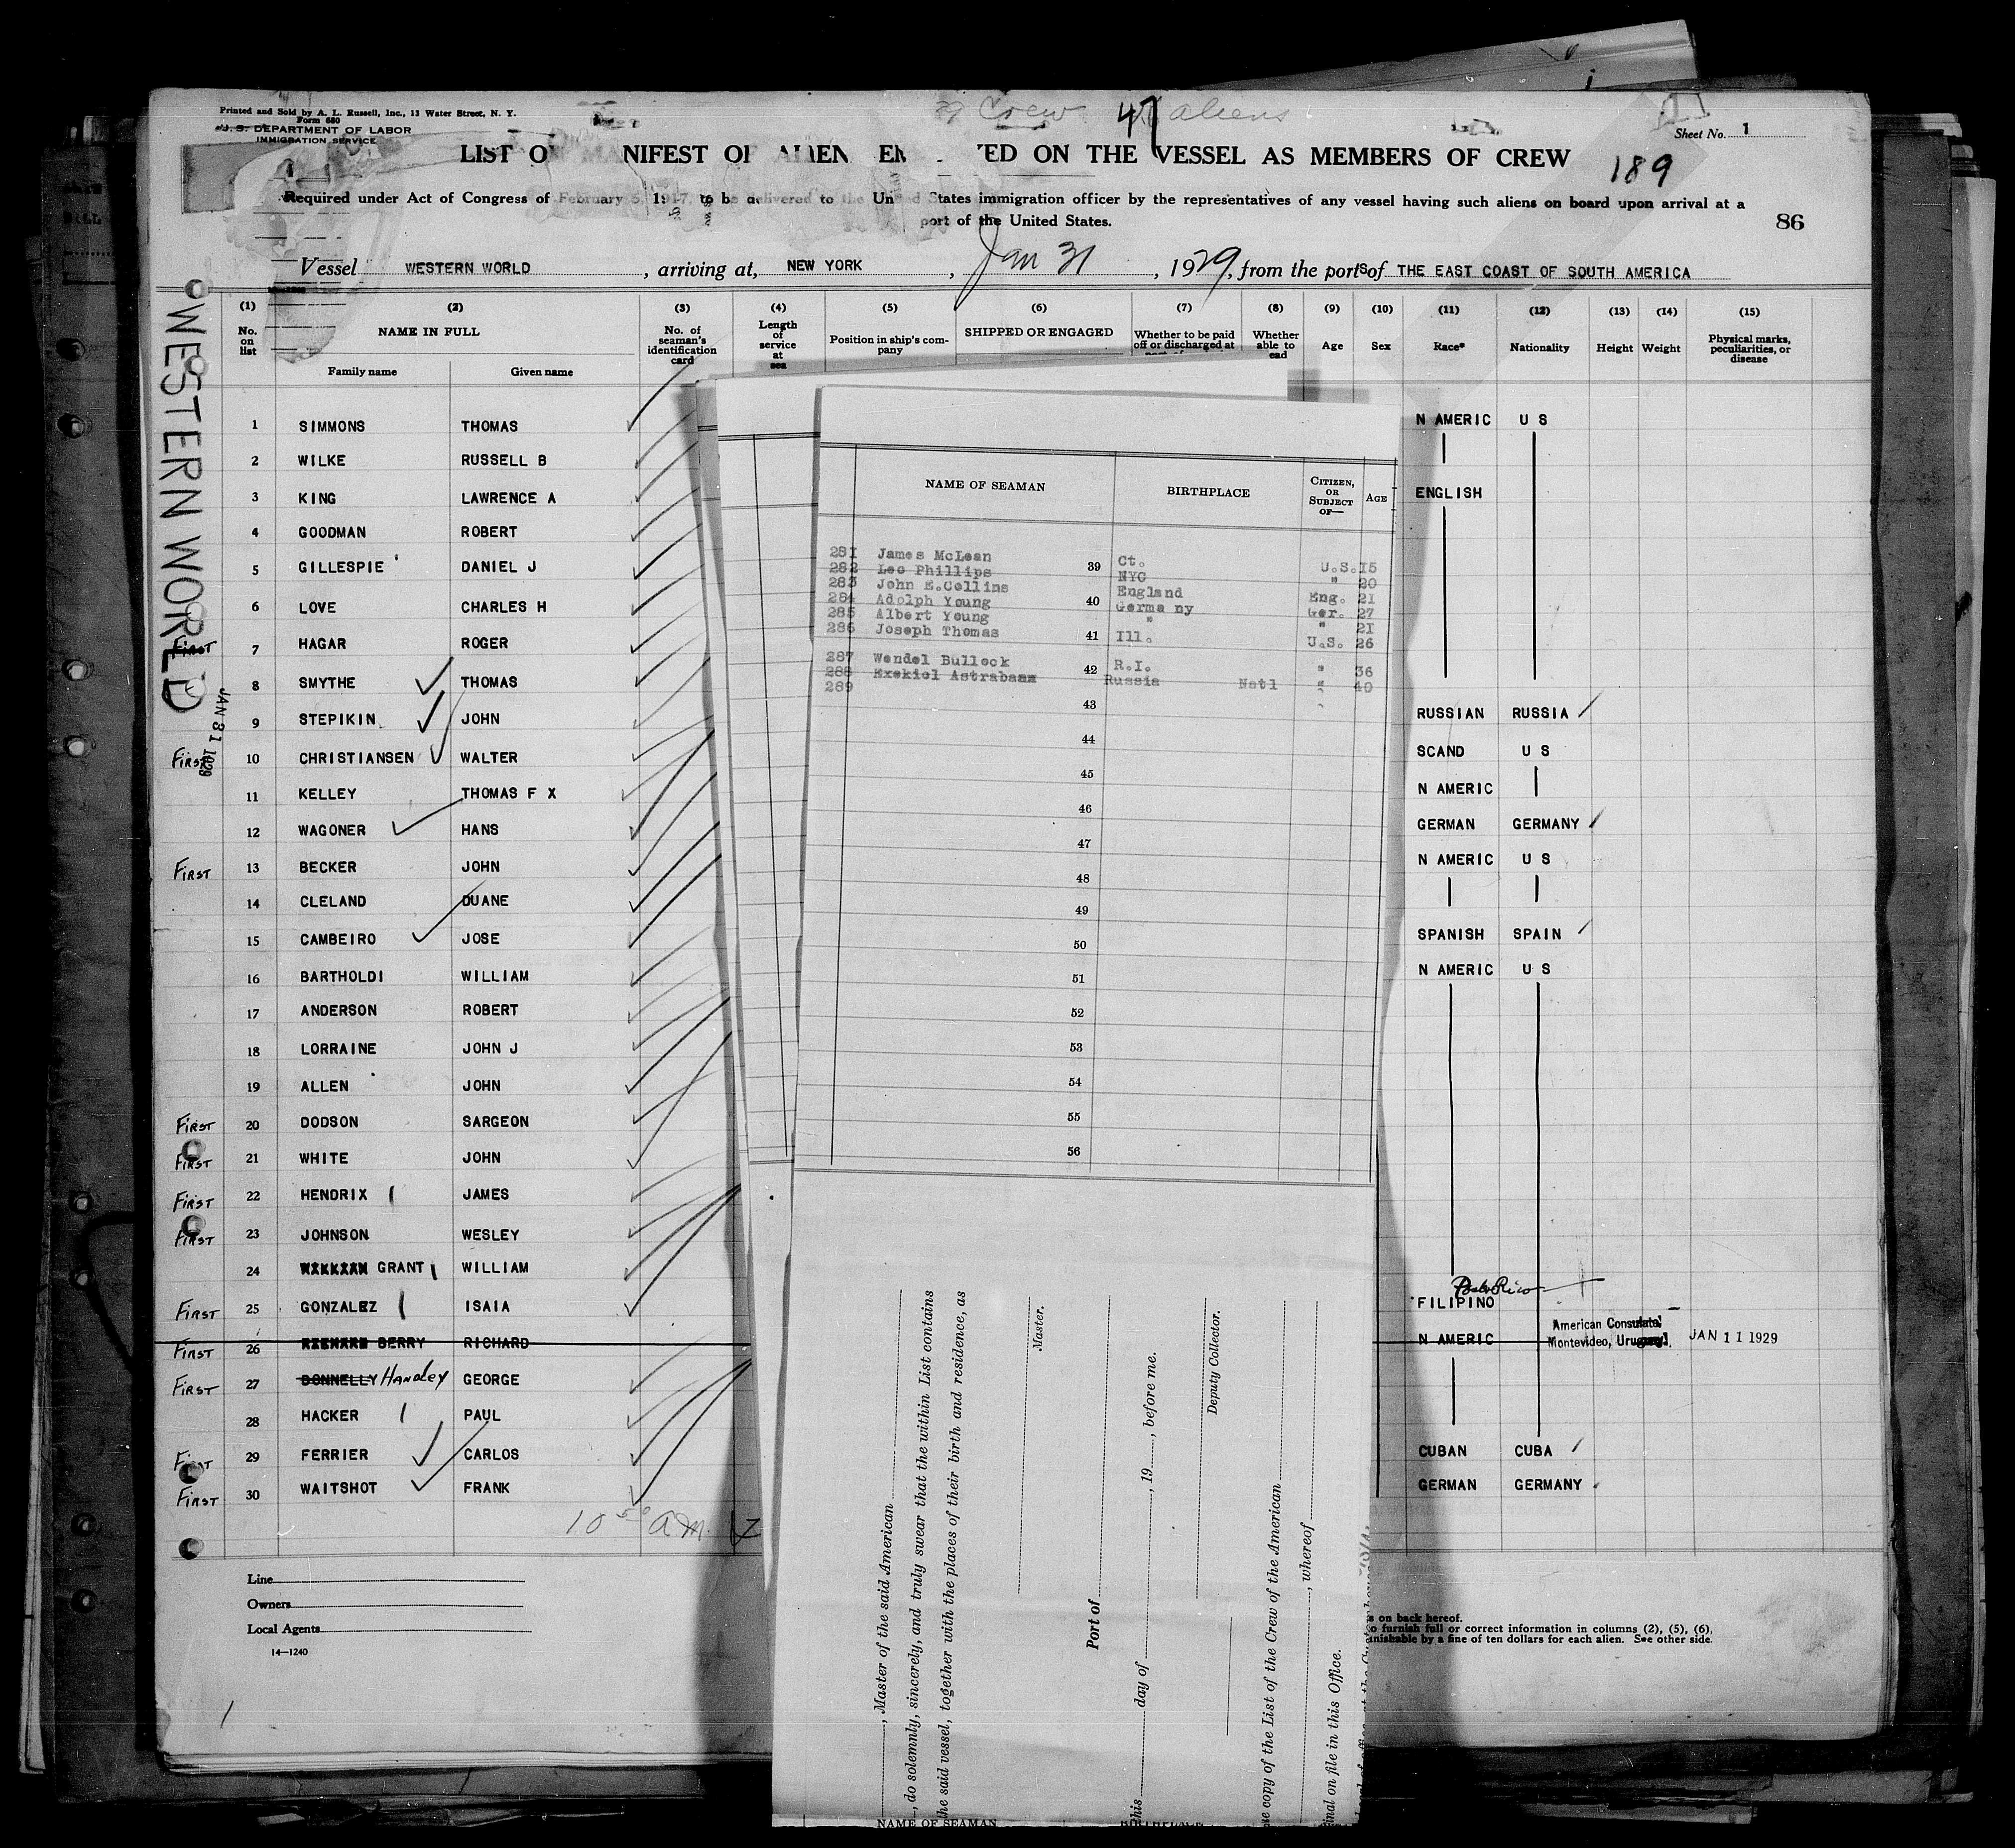 Printed and Sold by A. L. Russell, Inc., 13 Water Street, N. Y.
Form 680
U. S. DEPARTMENT OF LABOR
IMMIGRATION SERVICE
Crew 47 aliens
Sheet No. 1
LIST O NIFEST OF ALIEN ED ON THE VESSEL AS MEMBERS OF CREW
189
Required under Act of Congress of February 5, 1917, to be delivered to the United States immigration officer by the representatives of any vessel having such aliens on board upon arrival at a
port of the United States.
86
Vessel WESTERN WORLD, arriving at, NEW YORK, Jan 31, 1929, from the ports of THE EAST COAST OF SOUTH AMERICA
WESTERN WORLD
JAN 31 1929
(1) (2) (3) (4) (5) (6) (7) (8) (9) (10) (11) (12) (13) (14) (15)
No. on list
NAME IN FULL
Family name Given name
No. of seaman's identification card
Length of service at sea
Position in ship's company
SHIPPED OR ENGAGED
Whether to be paid off or discharged at
Whether able to
Age Sex Race* Nationality Height Weight
Physical marks, peculiarities, or disease
1 SIMMONS THOMAS N AMERIC U S
2 WILKE RUSSELL B
3 KING LAWRENCE A ENGLISH
4 GOODMAN ROBERT
5 GILLESPIE DANIEL J
6 LOVE CHARLES H
First 7 HAGAR ROGER
8 SMYTHE THOMAS
9 STEPIKIN JOHN RUSSIAN RUSSIA
First 10 CHRISTIANSEN WALTER SCAND U S
11 KELLEY THOMAS F X N AMERIC
12 WAGONER HANS GERMAN GERMANY
First 13 BECKER JOHN N AMERIC U S
14 CLELAND DUANE
15 CAMBEIRO JOSE SPANISH SPAIN
16 BARTHOLDI WILLIAM N AMERIC U S
17 ANDERSON ROBERT
18 LORRAINE JOHN J
19 ALLEN JOHN
First 20 DODSON SARGEON
First 21 WHITE JOHN
First 22 HENDRIX JAMES
First 23 JOHNSON WESLEY
24 GRANT WILLIAM
Porto Rico
First 25 GONZALEZ ISAIA FILIPINO
American Consulate
First 26 BERRY RICHARD N AMERIC Montevideo, Uruguay. JAN 11 1929
First 27 DONNELLY Handley GEORGE
28 HACKER PAUL
First 29 FERRIER CARLOS CUBAN CUBA
First 30 WAITSHOT FRANK GERMAN GERMANY
10 50 a.m.
NAME OF SEAMAN BIRTHPLACE CITIZEN, OR SUBJECT OF— AGE
281 James McLean 39 Ct. U.S. 15
282 Leo Phillips NYC " 20
283 John E.Collins England Eng. 21
284 Adolph Young 40 Germa ny Ger. 27
285 Albert Young " " 21
286 Joseph Thomas 41 Ill. U.S. 26
287 Wendel Bullock R.I. " 36
288 Exekiel Astrabaam 42 Russia Natl " 40
289
43
44
45
46
47
48
49
50
51
52
53
54
55
56
, Master of the said American
, do solemnly, sincerely, and truly swear that the within List contains
he said vessel, together with the places of their birth and residence, as
Master.
Port of
this day of , 19 , before me.
Deputy Collector.
copy of the List of the Crew of the American
, whereof
inal on file in this Office.
NAME OF SEAMAN
Line
Owners
Local Agents
14—1240
on back hereof.
o furnish full or correct information in columns (2), (5), (6),
unishable by a fine of ten dollars for each alien. See other side.